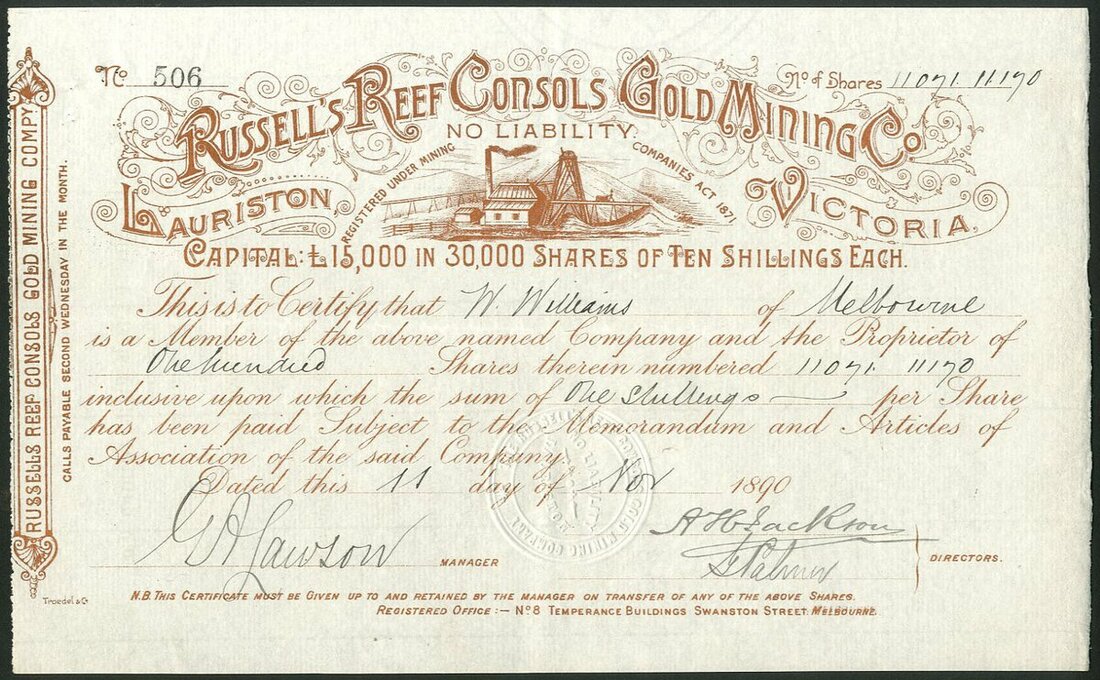 No 506
No of Shares 11071. 11170
RUSSELL'S REEF CONSOLS GOLD MINING Co
NO LIABILITY.
REGISTERED UNDER MINING COMPANIES ACT 1871.
LAURISTON, VICTORIA.
CAPITAL: £15,000 IN 30,000 SHARES OF TEN SHILLINGS EACH.
This is to Certify that W. Williams of Melbourne
is a Member of the above named Company and the Proprietor of
One hundred Shares therein numbered 11071. 11170
inclusive upon which the sum of One shillings per Share
has been paid Subject to the Memorandum and Articles of
Association of the said Company.
Dated this 11 day of Nov 1890
G A Lawson MANAGER
A H Jackson
S Palmer
DIRECTORS.
N.B. THIS CERTIFICATE MUST BE GIVEN UP TO AND RETAINED BY THE MANAGER ON TRANSFER OF ANY OF THE ABOVE SHARES.
REGISTERED OFFICE:— No 8 TEMPERANCE BUILDINGS SWANSTON STREET MELBOURNE.
RUSSELLS REEF CONSOLS GOLD MINING COMPY
CALLS PAYABLE SECOND WEDNESDAY IN THE MONTH.
Troedel & Co